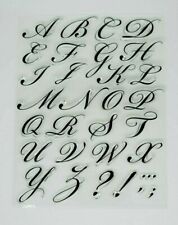 A B C D
E F G H
I J K L
M N O P
Q R S T
U V W X
Y Z ? ! " ; :